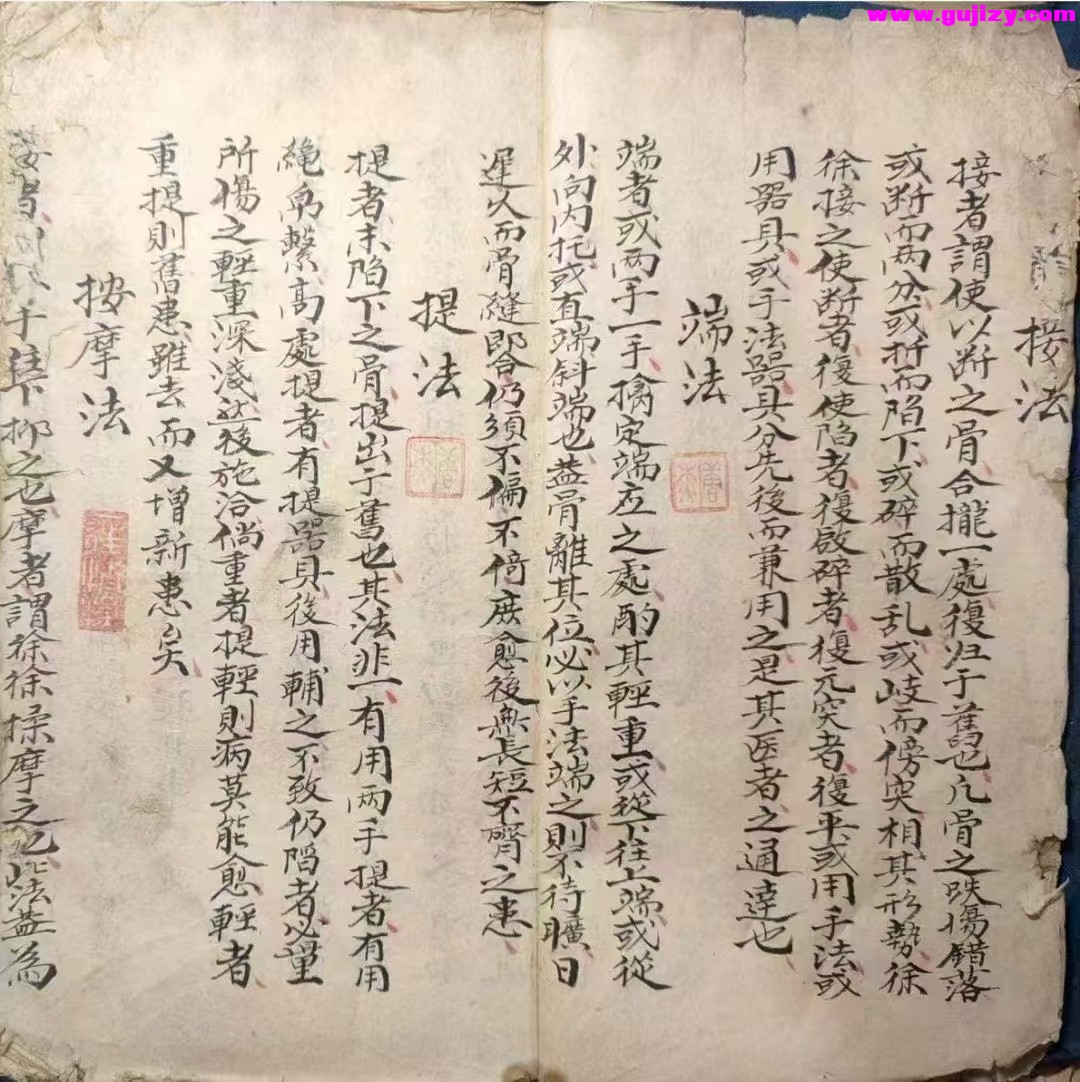 www.gujizy.com
接法
接者謂使以断之骨合攏一處復归于舊也凢骨之跌傷錯落
或断而两分或折而陷下或碎而散乱或岐而傍突相其形勢徐
徐接之使断者復使陷者復啟碎者復完突者復平或用手法或
用器具或手法器具分先後而兼用之是其医者之通達也
端法
端者或两手一手擒定端应之處酌其輕重或從下往上端或從
外向内托或直端斜端也盖骨離其位必以手法端之則不待曠日
遲久而骨縫即合仍須不偏不倚庶愈後無長短不齊之患
提法
提者未陷下之骨提出于舊也其法非一有用两手提者有用
繩帛繫高處提者有提器具後用輔之不致仍陷者必量
所傷之輕重深淺然後施治倘重者提輕則病莫能愈輕者
重提則舊患雖去而又增新患矣
按摩法
手往下抑之也摩者謂徐徐揉摩之也此法盖為